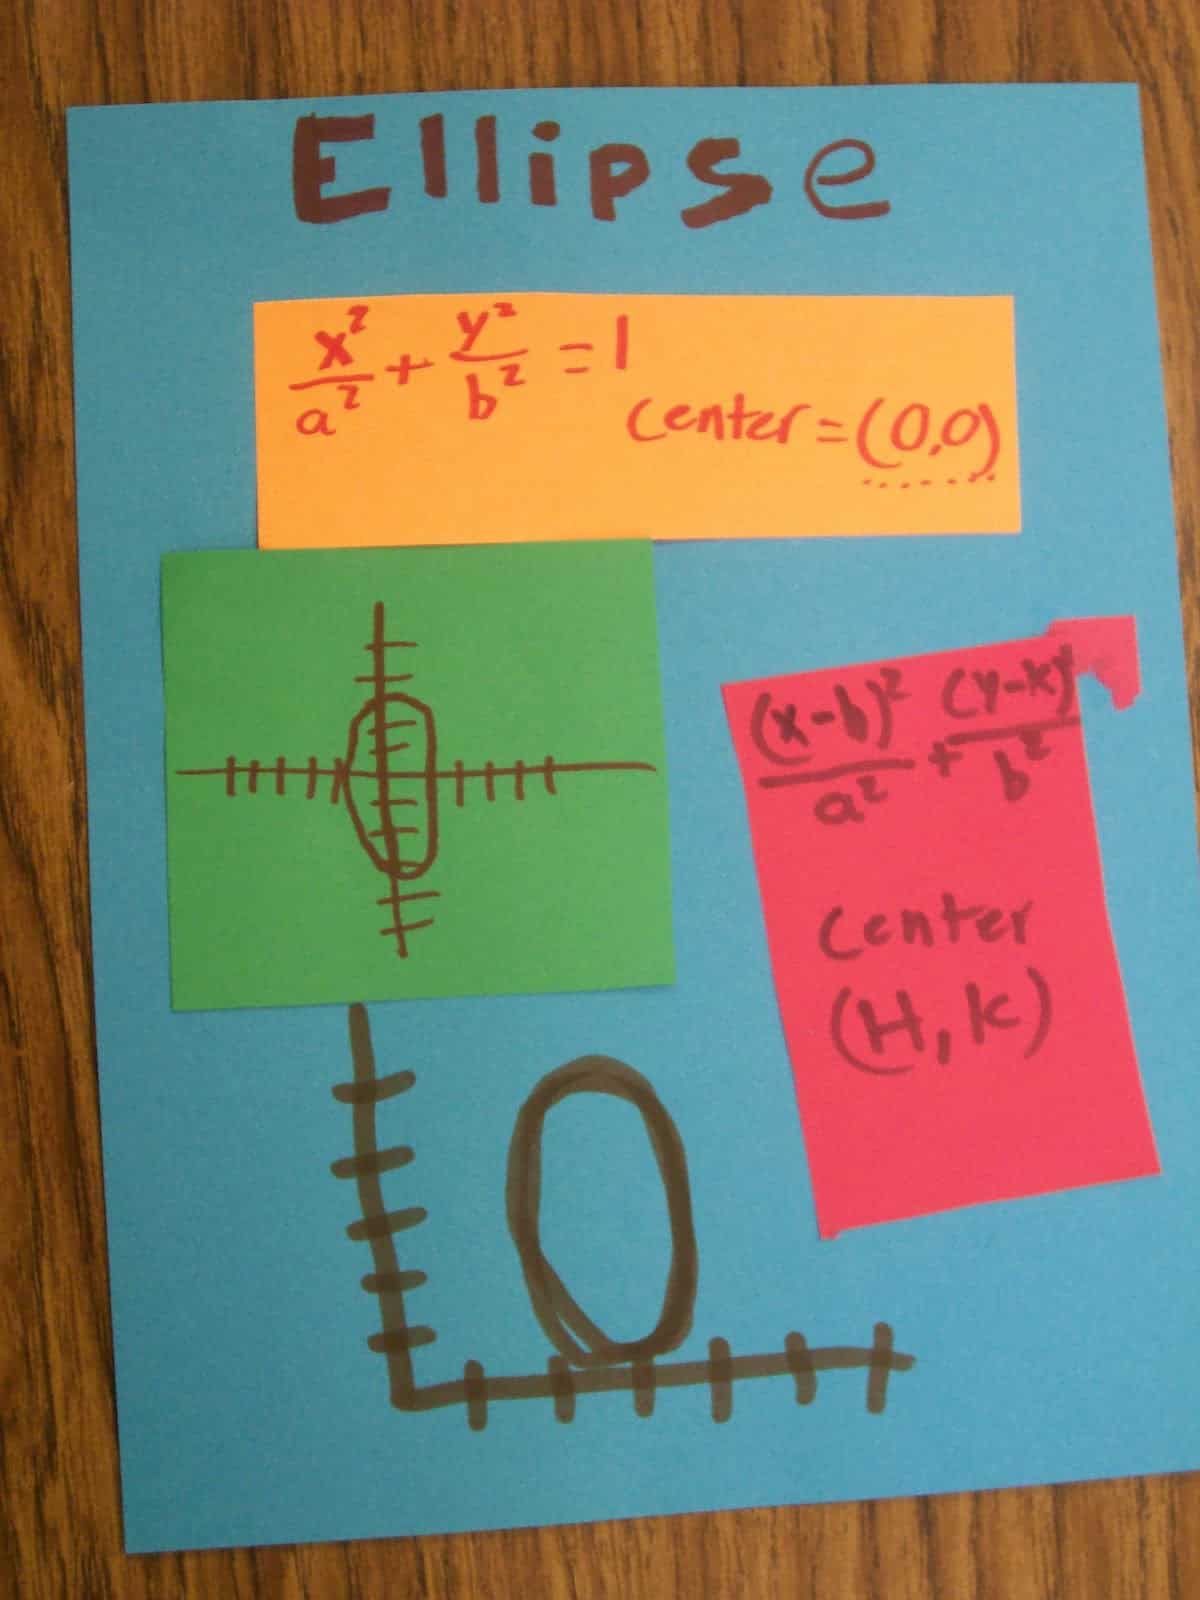 Ellipse
x²/a² + y²/b² = 1
center = (0,0)
(x-h)²/a² + (y-k)²/b²
center
(H, k)